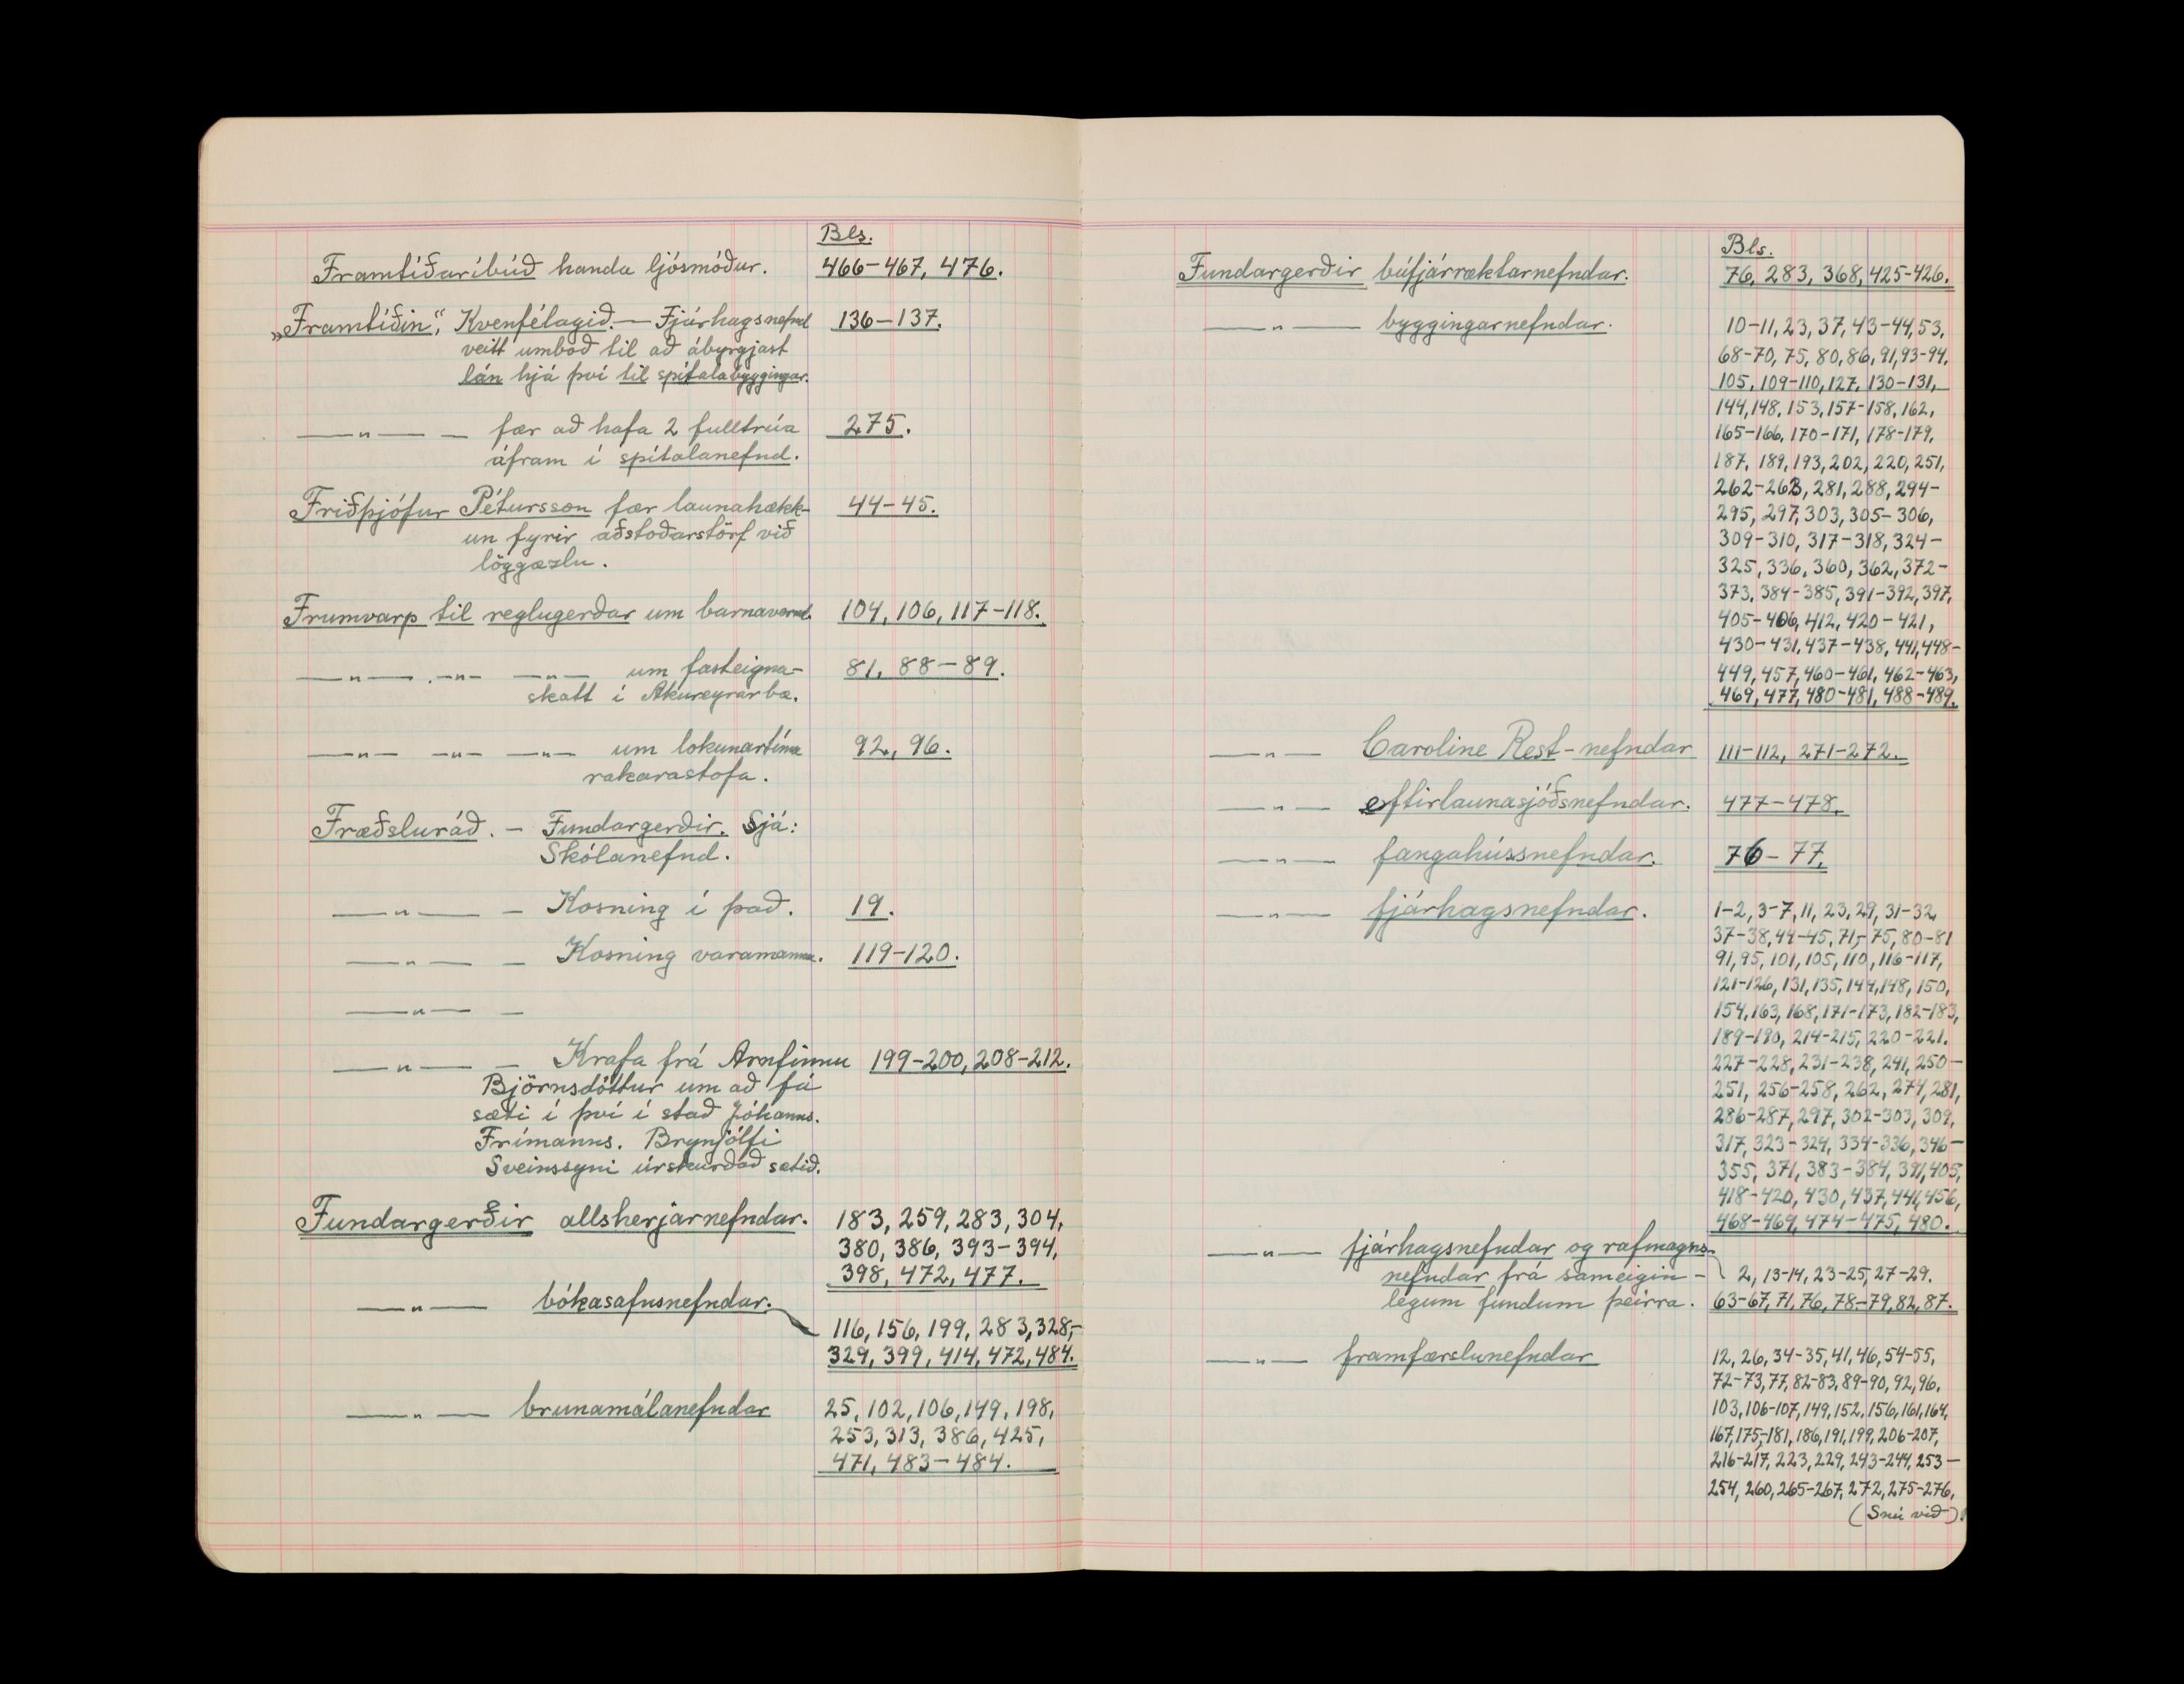 Bls.
Framtíðaríbúð handa ljósmóður. 466-467, 476.
„Framtíðin“, Kvenfélagið. — Fjárhagsnefnd 136-137.
veitt umboð til að ábyrgjast
lán hjá því til spítalabyggingar.
—„— — fær að hafa 2 fulltrúa 275.
áfram í spítalanefnd.
Friðþjófur Pétursson fær launahækk- 44-45.
un fyrir aðstoðarstörf við
löggæzlu.
Frumvarp til reglugerðar um barnavernd. 104, 106, 117-118.
—„— —„— —„— um fasteigna- 81, 88-89.
skatt í Akureyrarbæ.
—„— —„— —„— um lokunartíma 92, 96.
rakarastofa.
Fræðsluráð. - Fundargerðir. Sjá:
Skólanefnd.
—„— — Kosning í það. 19.
—„— — Kosning varamanna. 119-120.
—„— —
—„— — Krafa frá Arnfinnu 199-200, 208-212.
Björnsdóttur um að fá
sæti í því í stað Jóhanns.
Frímanns. Brynjólfi
Sveinssyni úrskurðað sætið.
Fundargerðir allsherjarnefndar. 183, 259, 283, 304,
380, 386, 393-394,
398, 472, 477.
—„— bókasafnsnefndar.
116, 156, 199, 283, 328,-
329, 399, 414, 472, 484.
—„— brunamálanefndar 25, 102, 106, 149, 198,
253, 313, 386, 425,
471, 483-484.
Bls.
Fundargerðir búfjárræktarnefndar. 76, 283, 368, 425-426.
—„— byggingarnefndar. 10-11, 23, 37, 43-44, 53,
68-70, 75, 80, 86, 91, 93-94,
105, 109-110, 127, 130-131,
144, 148, 153, 157-158, 162,
165-166, 170-171, 178-179,
187, 189, 193, 202, 220, 251,
262-263, 281, 288, 294-
295, 297, 303, 305-306,
309-310, 317-318, 324-
325, 336, 360, 362, 372-
373, 384-385, 391-392, 397,
405-406, 412, 420-421,
430-431, 437-438, 441, 448-
449, 457, 460-461, 462-463,
469, 477, 480-481, 488-489.
—„— Caroline Rest-nefndar 111-112, 271-272.
—„— eftirlaunasjóðsnefndar. 477-478.
—„— fangahússnefndar. 76-77.
—„— fjárhagsnefndar. 1-2, 3-7, 11, 23, 29, 31-32,
37-38, 44-45, 71,-75, 80-81
91, 95, 101, 105, 110, 116-117,
121-126, 131, 135, 144, 148, 150,
154, 163, 168, 171-173, 182-183,
189-190, 214-215, 220-221.
227-228, 231-238, 241, 250-
251, 256-258, 262, 274, 281,
286-287, 297, 302-303, 309,
317, 323-324, 334-336, 346-
355, 371, 383-384, 391, 405,
418-420, 430, 437, 441, 456,
468-469, 474-475, 480.
—„— fjárhagsnefndar og rafmagns-
nefndar frá sameigin- 2, 13-14, 23-25, 27-29.
legum fundum þeirra. 63-67, 71, 76, 78-79, 82, 87.
—„— framfærslunefndar 12, 26, 34-35, 41, 46, 54-55,
72-73, 77, 82-83, 89-90, 92, 96.
103, 106-107, 149, 152, 156, 161, 164,
167, 175,-181, 186, 191, 199, 206-207,
216-217, 223, 229, 243-244, 253-
254, 260, 265-267, 272, 275-276,
(Snú við).